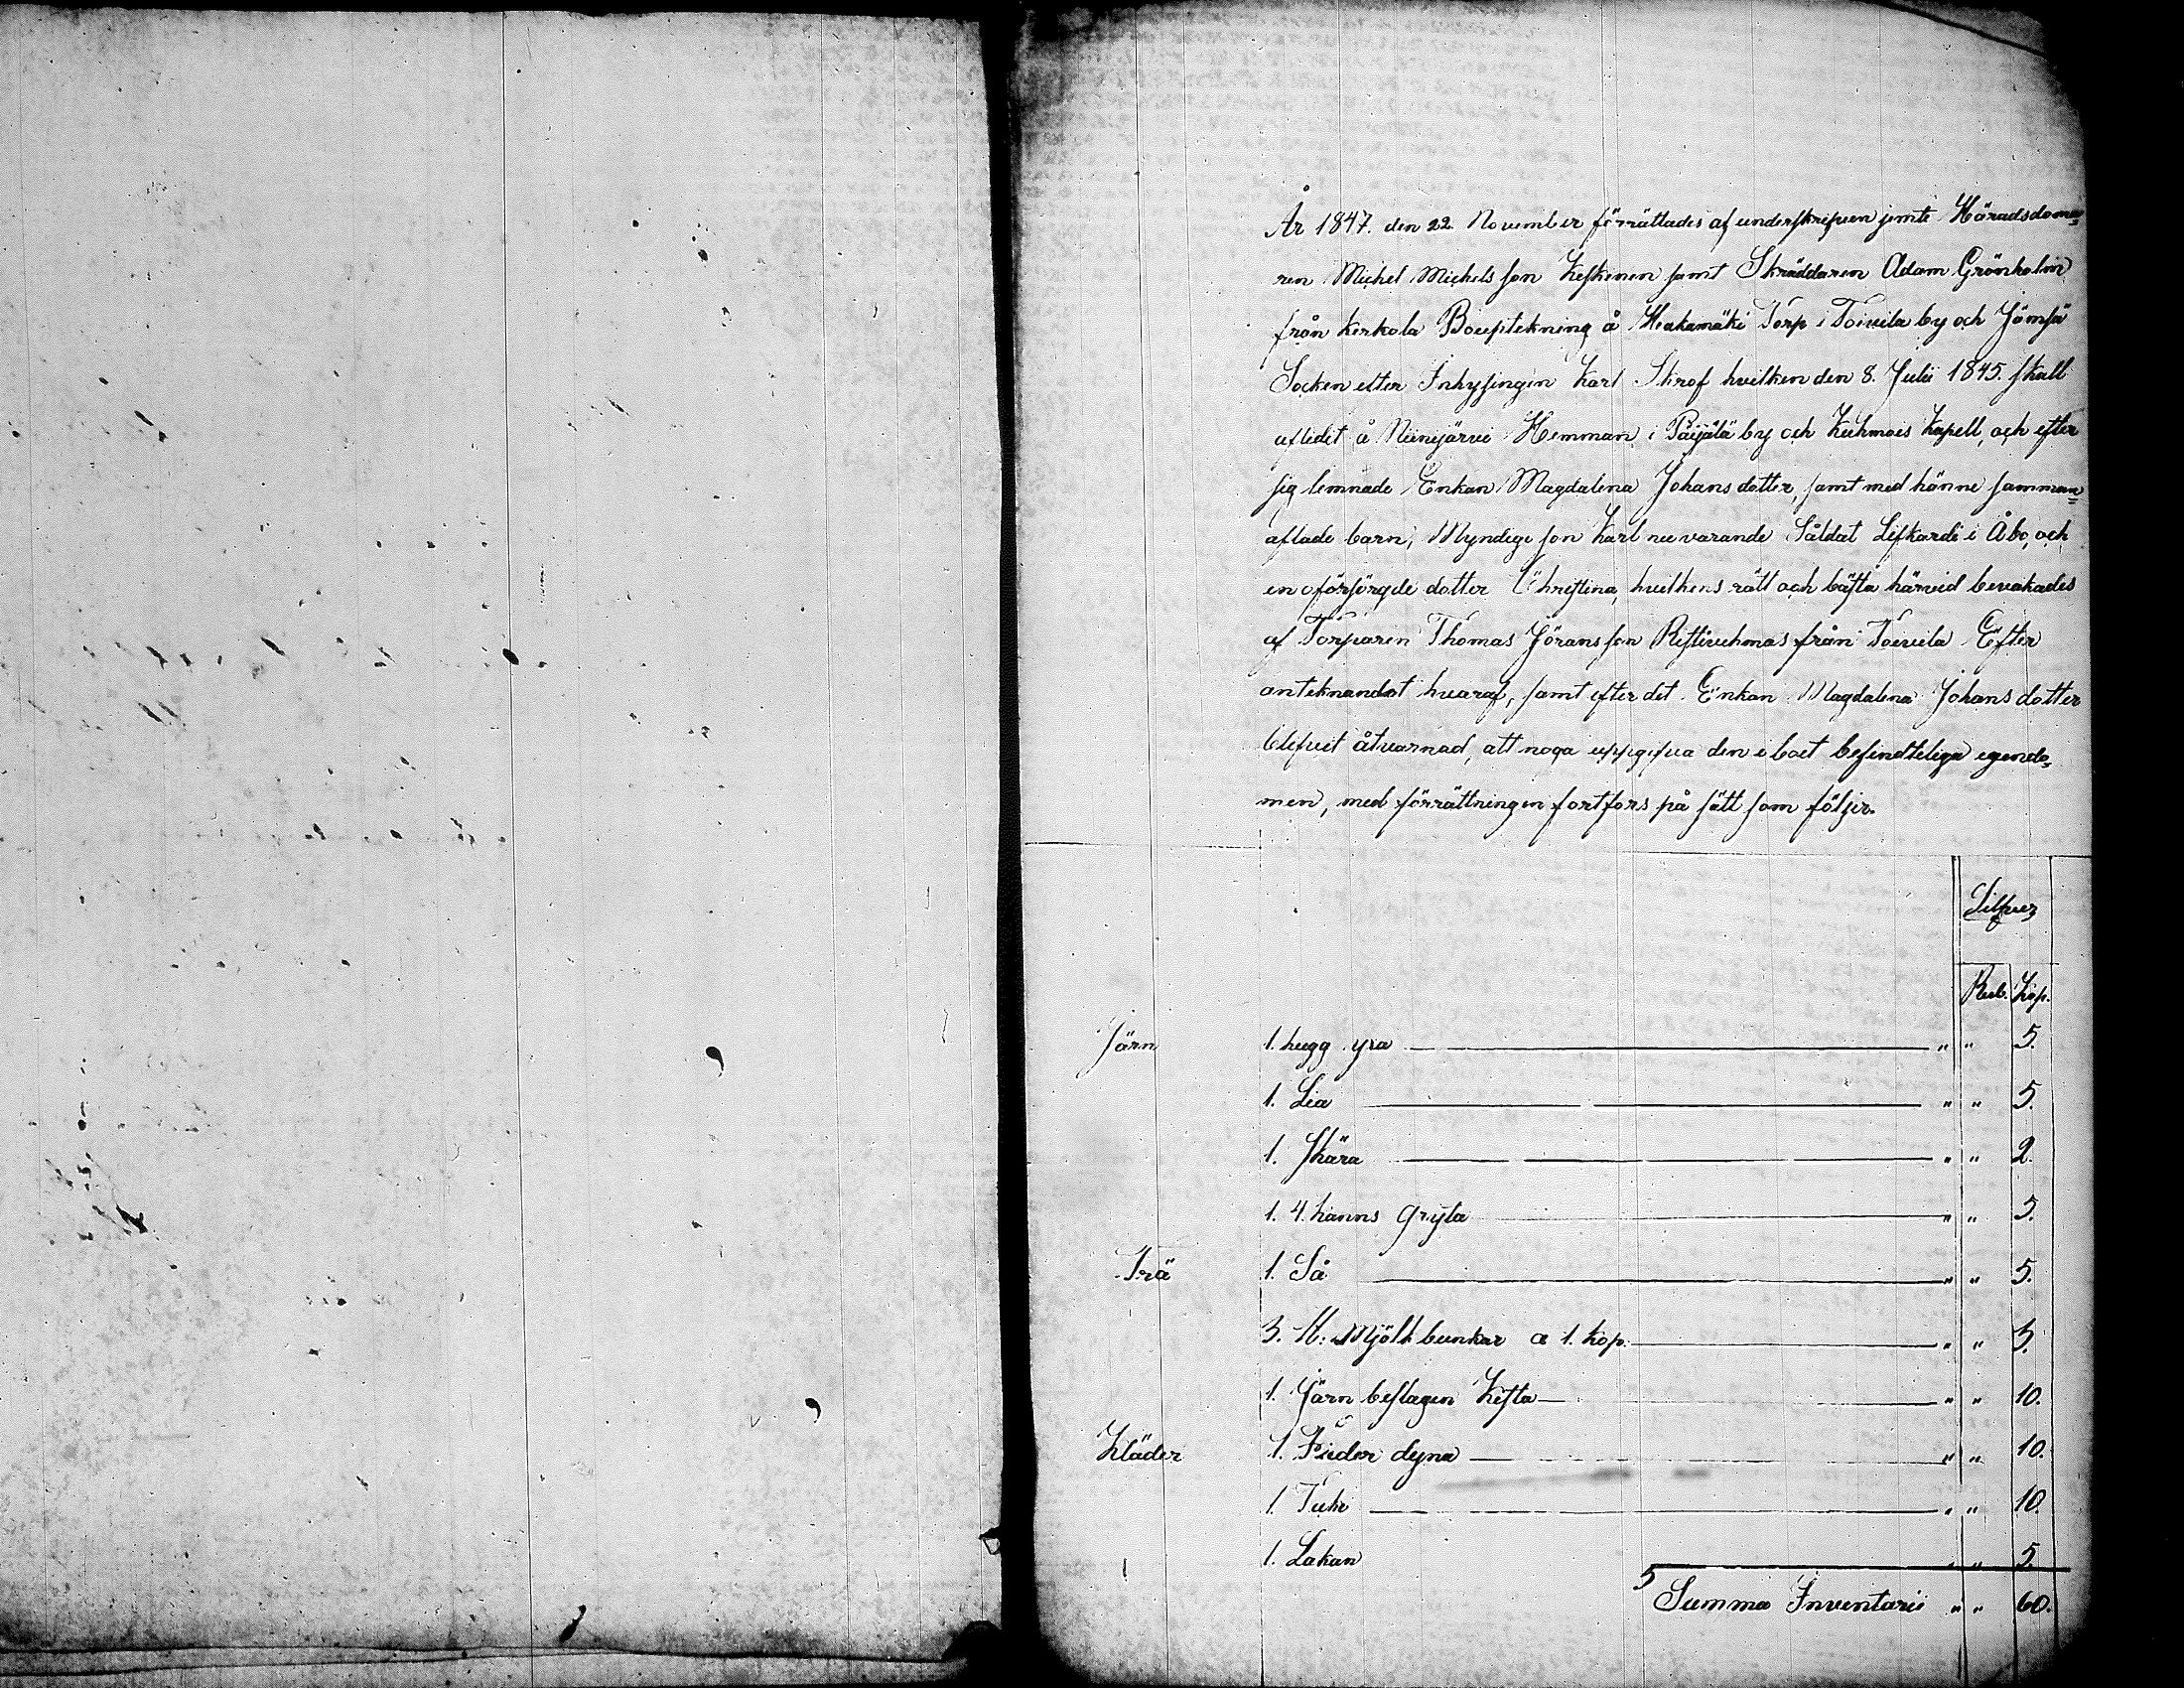 År 1847. den 22. November förrättades af underskrifven jemte Häradsdoma=
ren Michel Michelsson Keskinen samt Skräddaren Adam Grönholm
från Kerkola Bouptekning å Hakamäki Torp i Toivila by och Jämsä
Socken efter Inhysingen Karl Skrof hvilken den 8. Julii 1845. skall
aflidit å Niinijärvi Hemman i Päijälä by och Kuhmois Kapell, och efter
sig lemnade Enkan Magdalena Johansdotter, samt med hänne samman=
aflade barn, Myndige son Karl nu varande Såldat Lifkarde i Åbo, och
en oförsörgde dotter Christina, hvilkens rätt och bästa härvid bevakades
af Torparen Thomas Jöransson Ristiruhmas från Toivila Efter
anteknandet hvaraf, samt efter det Enkan Magdalena Johansdotter
blefvit åtvarnad, att noga uppgifva den i boet befindteliga egendo=
men, med förrättningen fortfors på sätt som följer.
Silfver
Rub. Kop.
Järn 1. hugg yxa " " 5.
1. Lia " " 5.
1. Skära " " 2.
1. 4. kanns Gryta " " 5.
Trä 1. Så " " 5.
3. St: Mjölk bunkar a 1. kop. " " 3.
1. Järn beslagen Kista " " 10.
Kläder 1. Fieder dyna " " 10.
1. Täke " " 10.
1. Lakan " " 5.
Summa Inventarii " " 60.